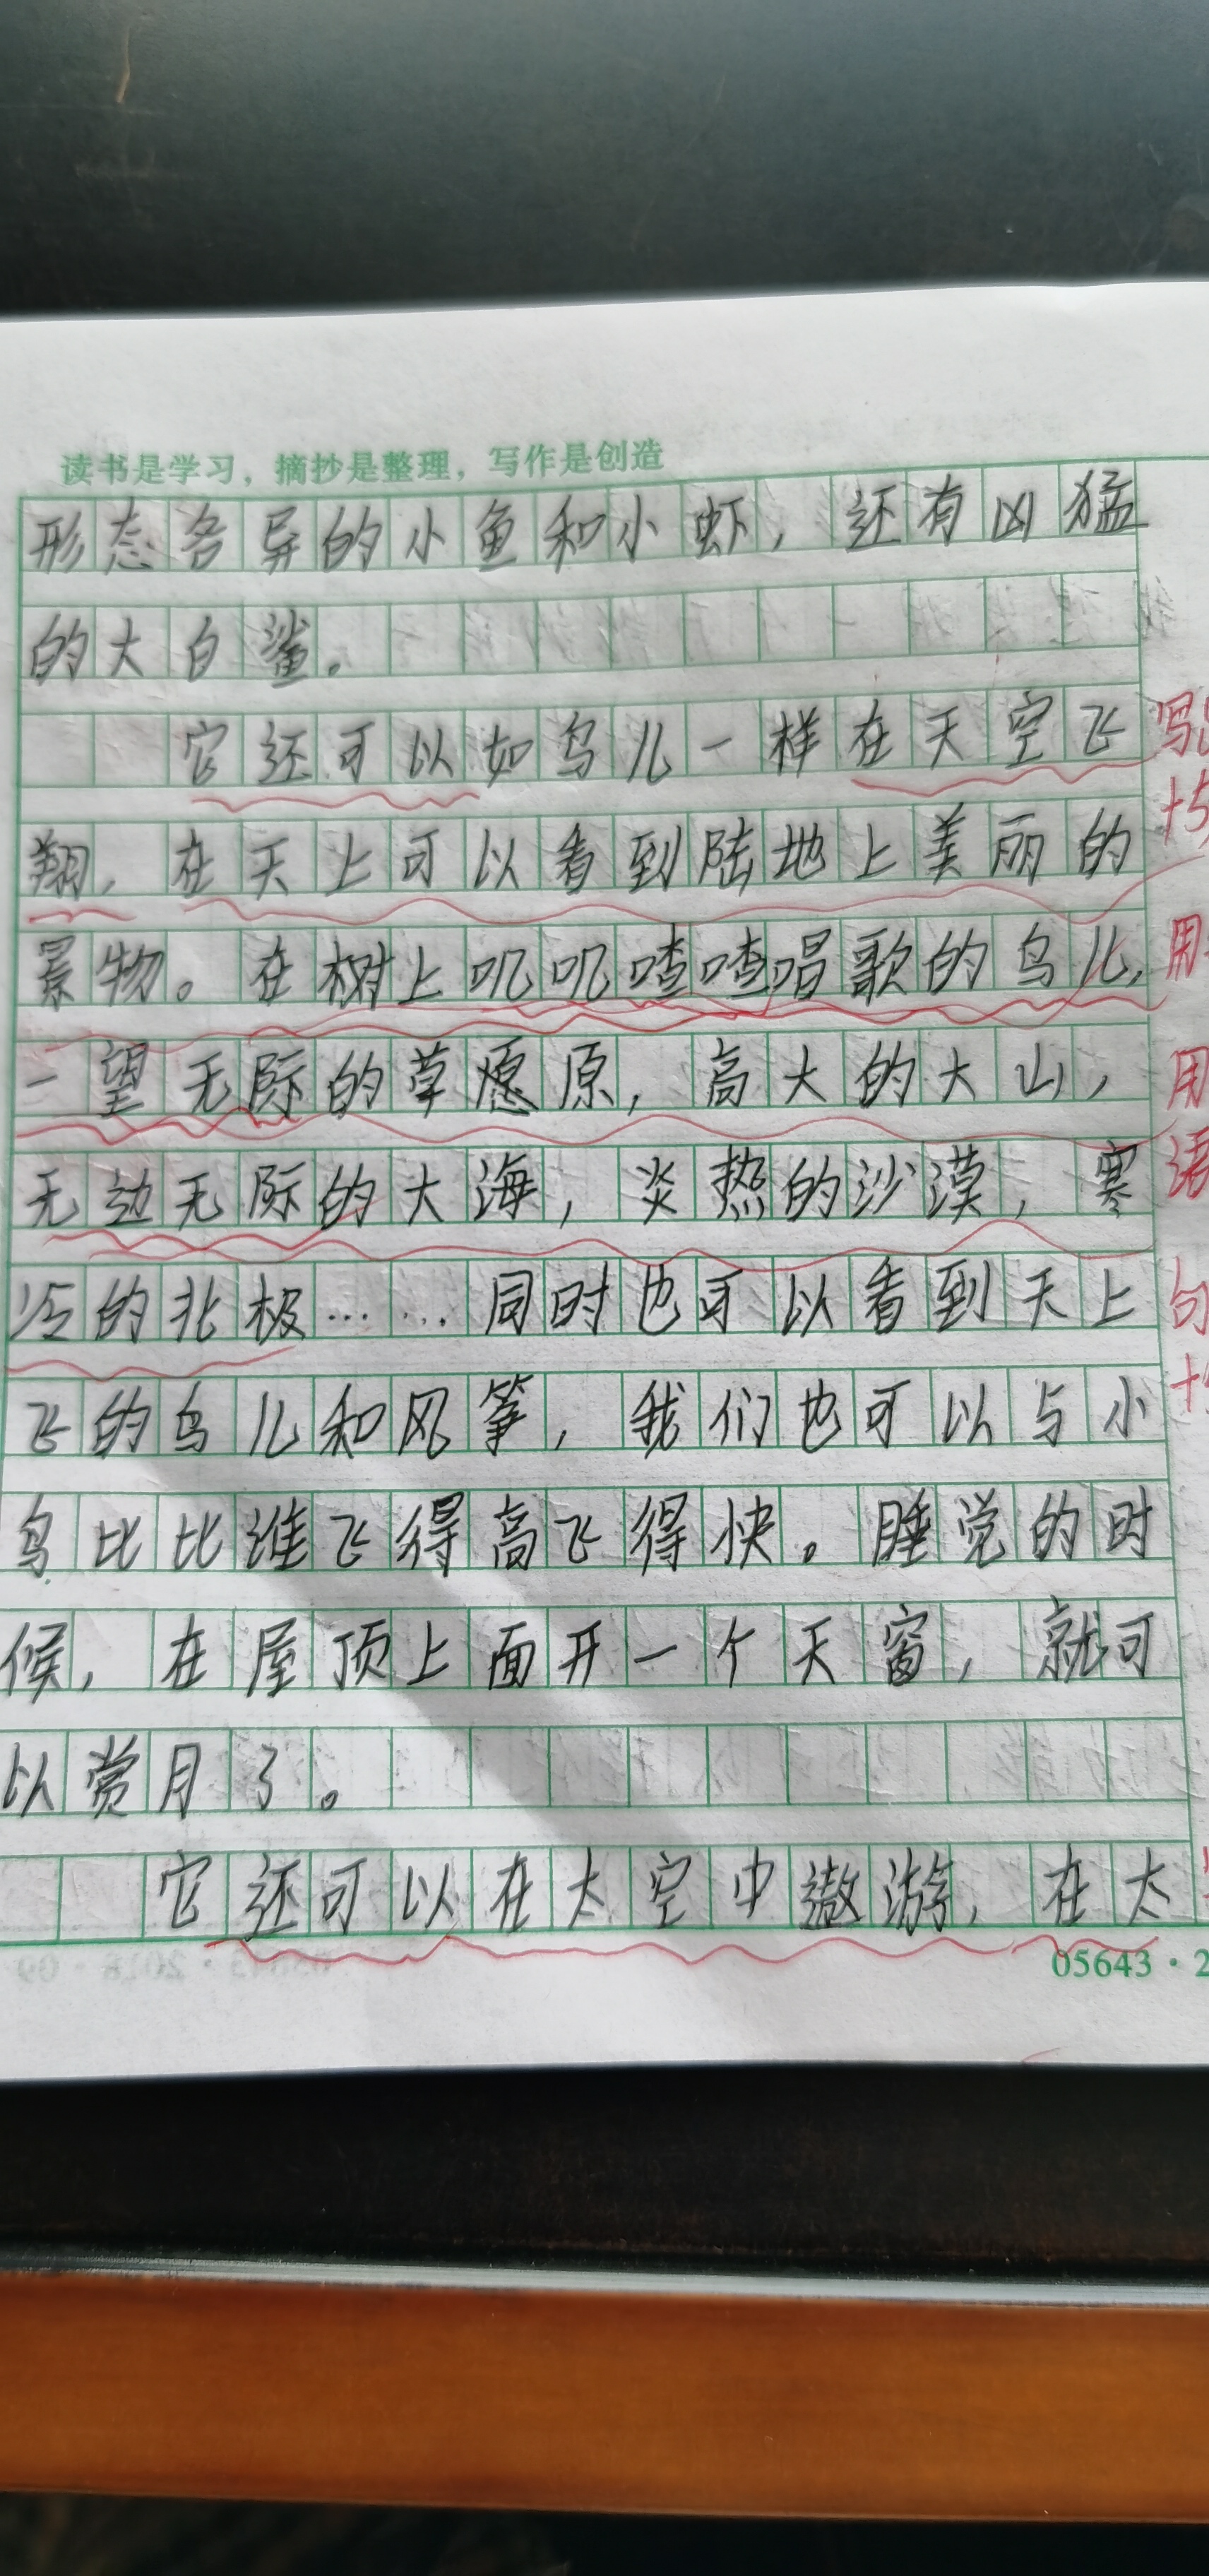 读书是学习，摘抄是整理，写作是创造
形态各异的小鱼和小虾，还有凶猛
的大白鲨。
它还可以如鸟儿一样在天空飞
翔，在天上可以看到陆地上美丽的
景物。在树上叽叽喳喳唱歌的鸟儿，
一望无际的草原，高大的大山，
无边无际的大海，炎热的沙漠，寒
冷的北极……同时也可以看到天上
飞的鸟儿和风筝，我们也可以与小
鸟比比谁飞得高飞得快。睡觉的时
候，在屋顶上面开一个天窗，就可
以赏月了。
它还可以在太空中遨游，在太
05643·2
用
用
语
句